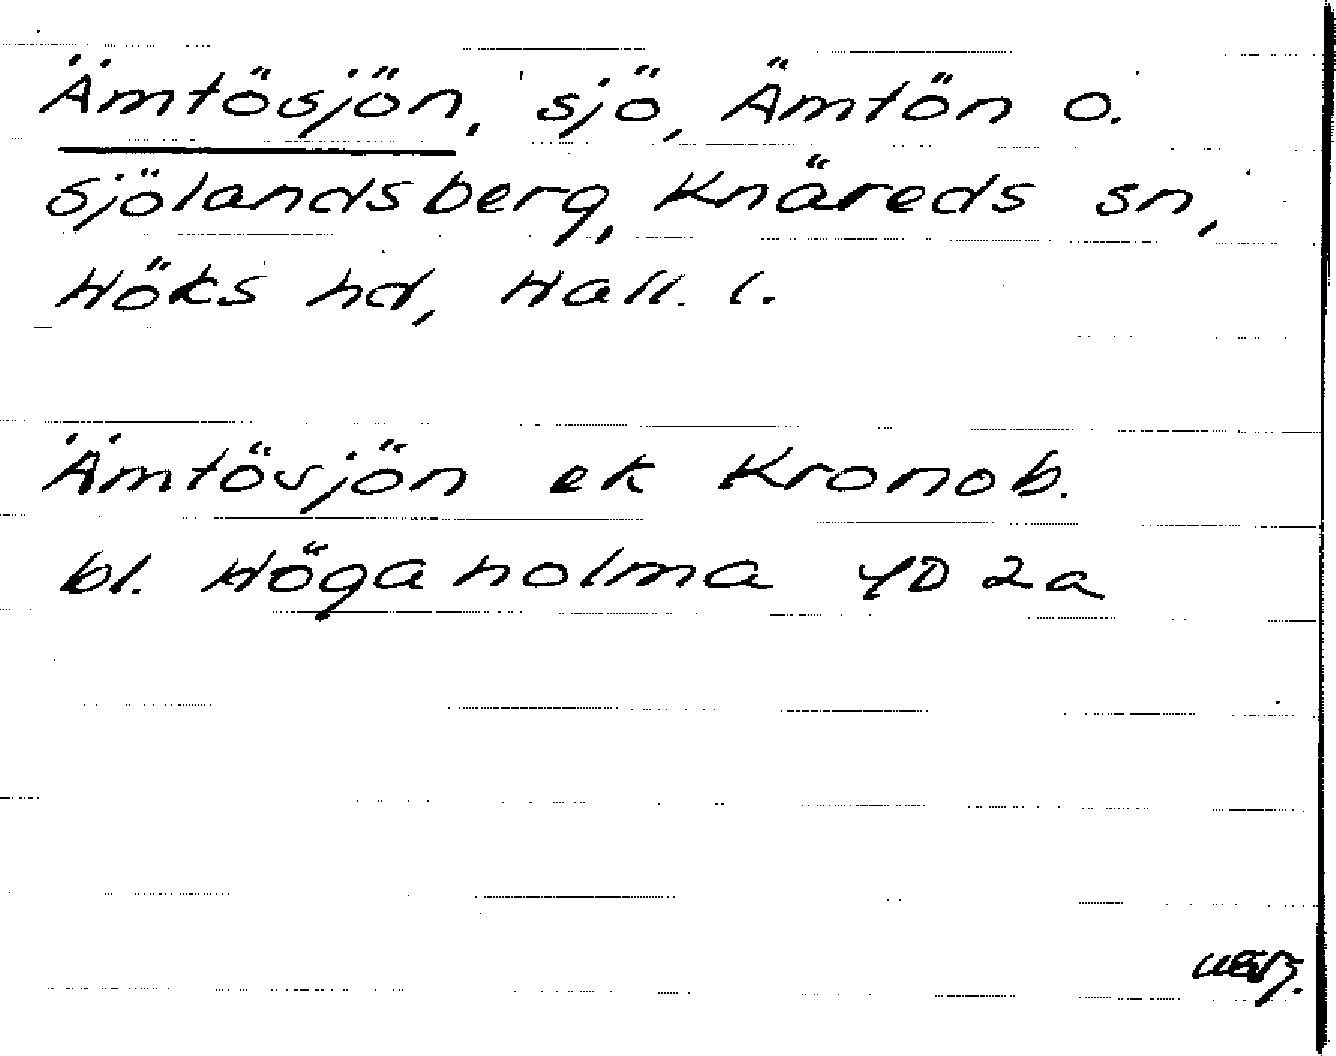 Ämtösjön, sjö, Ämtön o.
Sjölandsberg, Knäreds sn,
Höks hd, Hall. l.
Ämtösjön ek Kronob.
bl. Högaholma 4D 2a